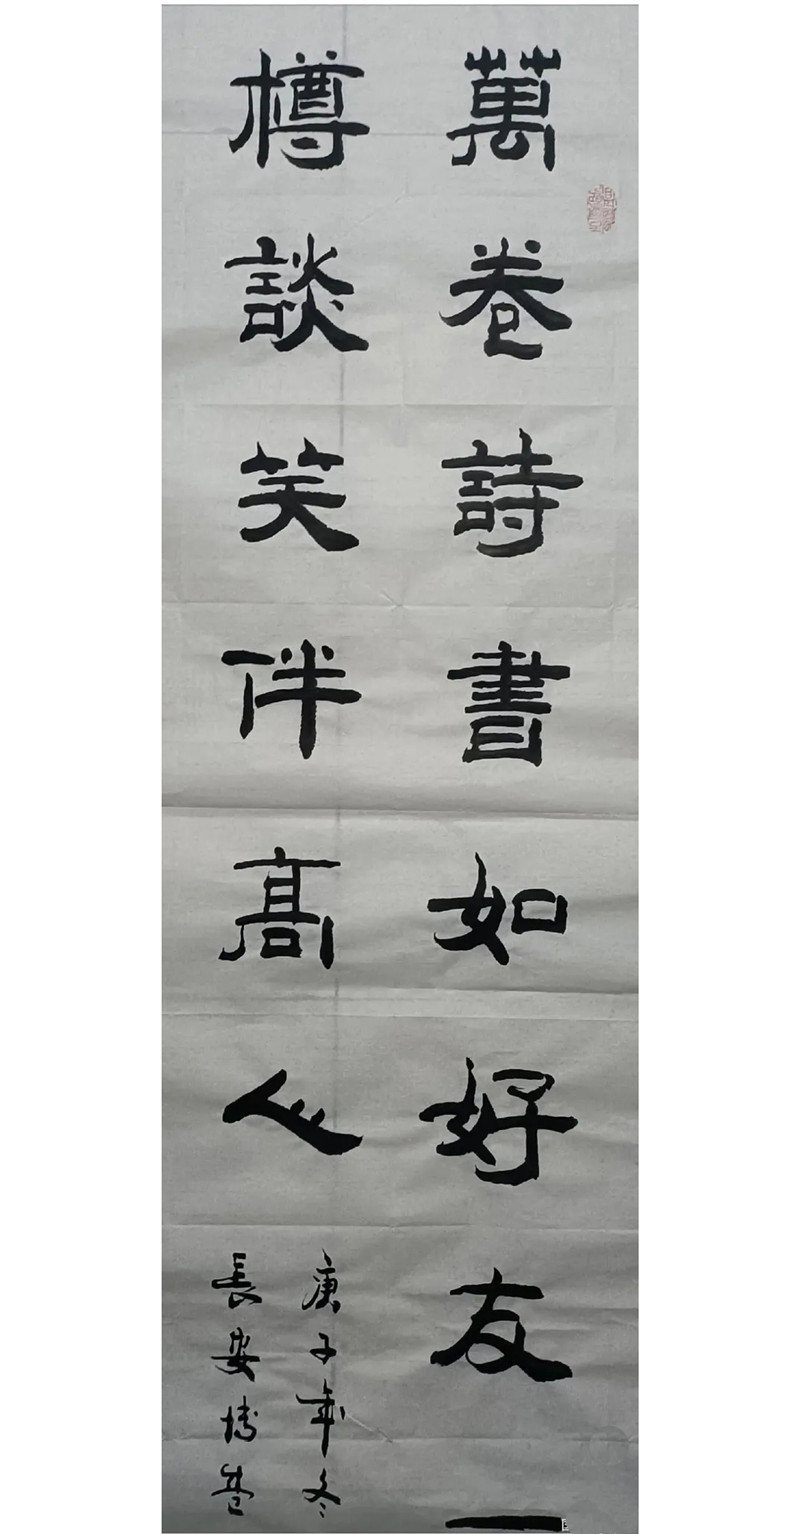 萬卷詩書如好友一
樽談笑伴高人
庚子年冬
長安